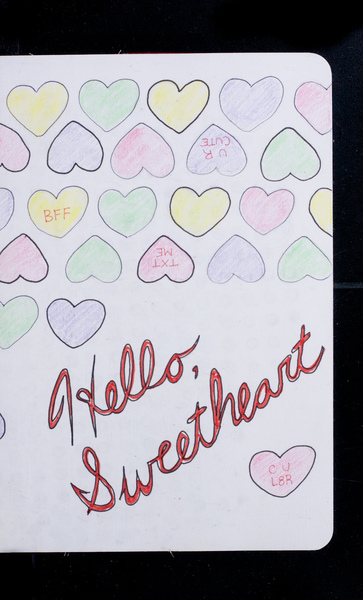 U R
CUTE
BFF
TXT
ME
Hello,
Sweetheart
C U
L8R